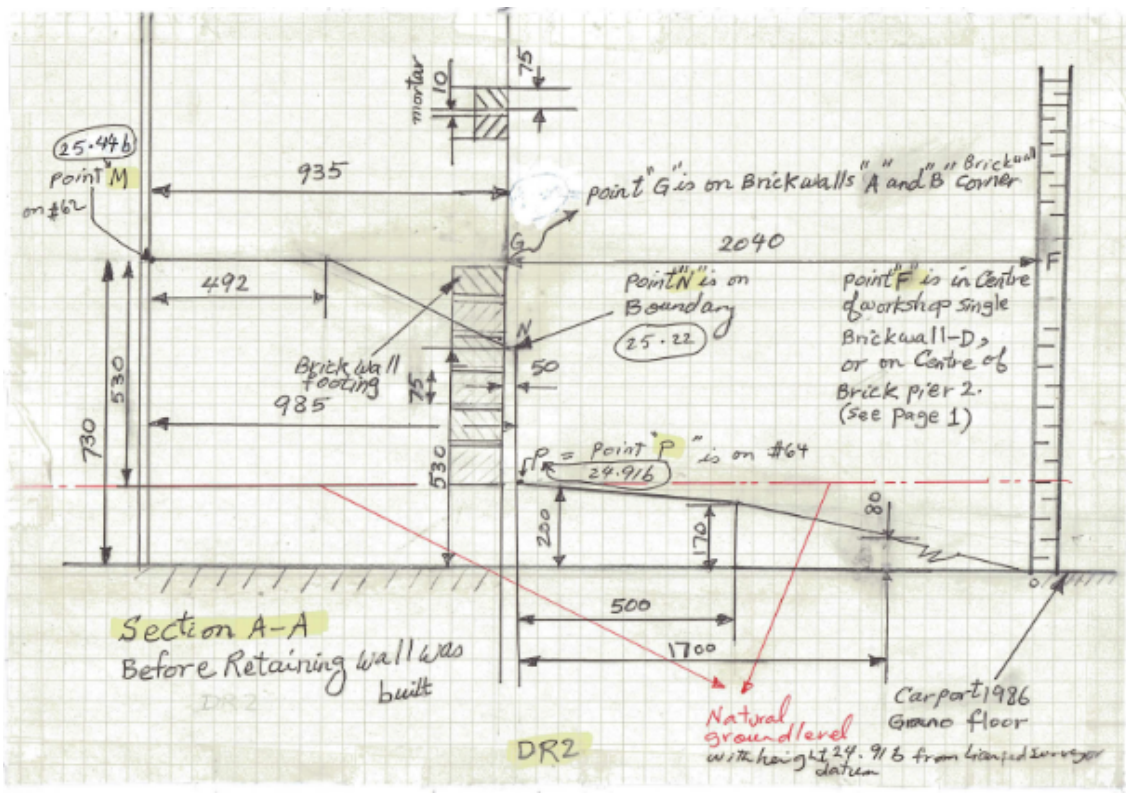 mortar
10
75
25.446
point "M"
on #62
935
point "G" is on Brickwalls "A" and "B" Brickwall
corner
G
2040
F
492
point "N" is on
Boundary
25.22
point "F" is in Centre
of workshop single
Brickwall-D,
or on Centre of
Brick pier 2.
(see page 1)
N
50
Brick wall
footing
75
530
730
985
530
P = point "P" is on #64
24.916
200
170
80
500
1700
Section A-A
Before Retaining wall was
built
DR2
Carport 1986
Grano floor
Natural
ground level
with height 24.916 from licensed surveyor
datum
DR2